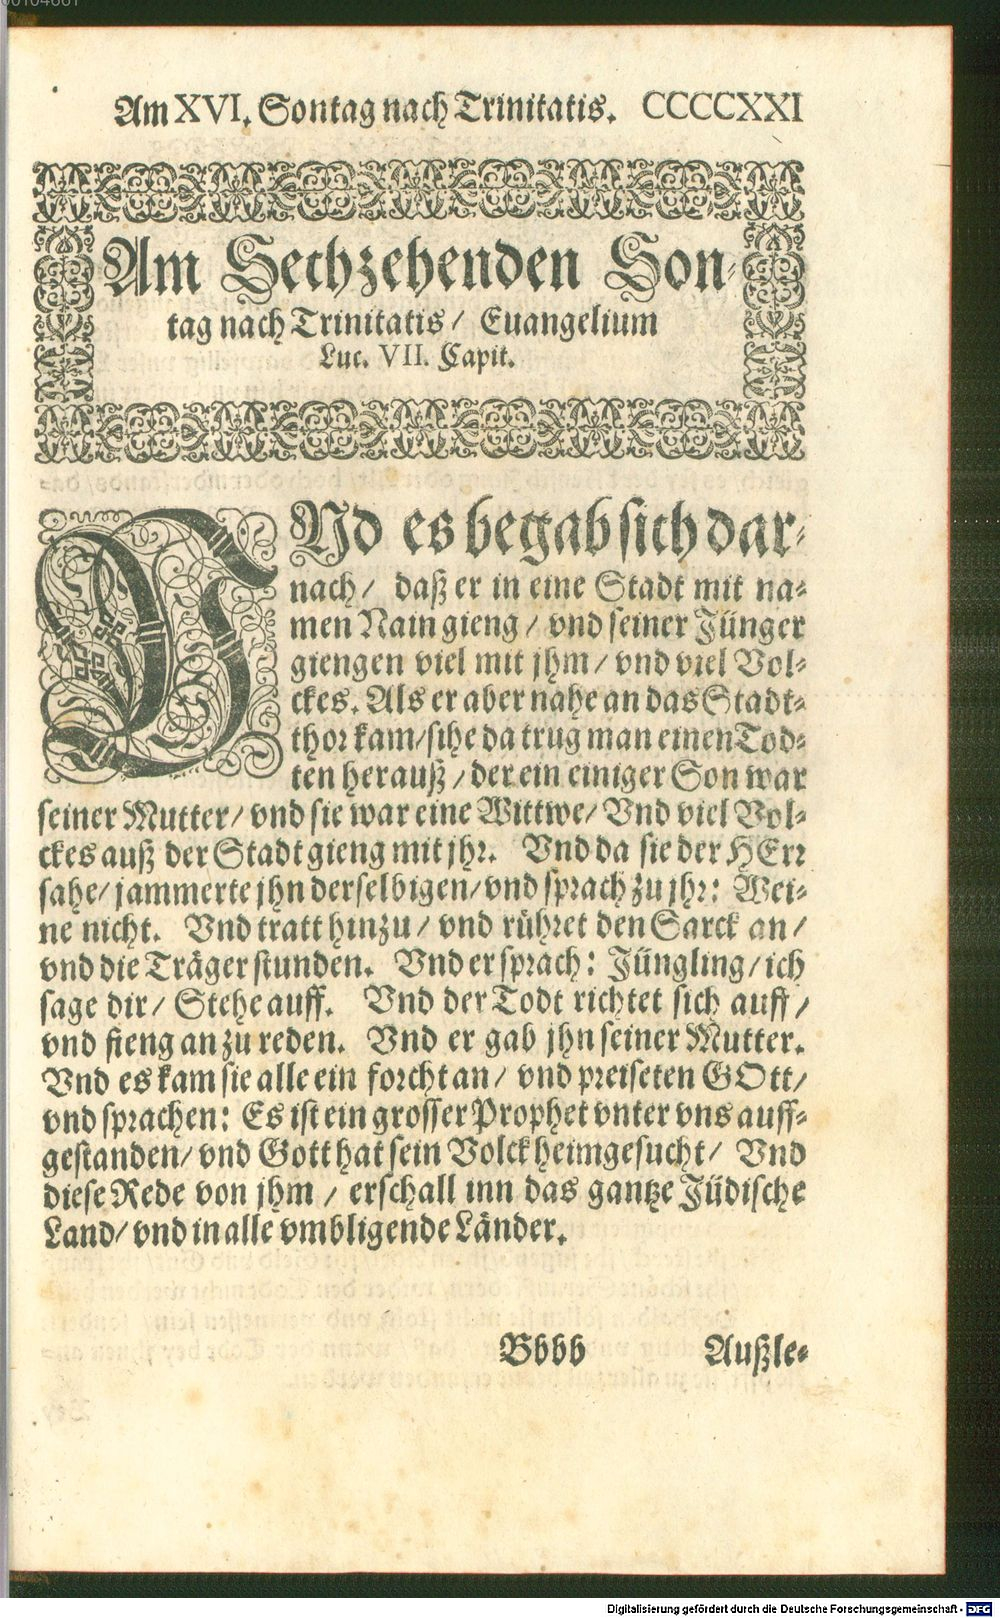 00104661
Am XVI. Sontag nach Trinitatis. CCCCXXI
Am Sechzehenden Son-
tag nach Trinitatis/ Euangelium
Luc. VII. Capit.
VNd es begab sich dar-
nach/ daß er in eine Stadt mit na-
men Nain gieng/ vnd seiner Jünger
giengen viel mit jhm/ vnd viel Vol-
ckes. Als er aber nahe an das Stadt-
thor kam/ sihe da trug man einen Tod-
ten herauß/ der ein einiger Son war
seiner Mutter/ vnd sie war eine Wittwe/ Vnd viel Vol-
ckes auß der Stadt gieng mit jhr. Vnd da sie der HErr
sahe/ jammerte jhn derselbigen/ vnd sprach zu jhr: Wei-
ne nicht. Vnd tratt hinzu/ vnd rühret den Sarck an/
vnd die Träger stunden. Vnd er sprach: Jüngling/ ich
sage dir/ Stehe auff. Vnd der Todt richtet sich auff/
vnd fieng an zu reden. Vnd er gab jhn seiner Mutter.
Vnd es kam sie alle ein forcht an/ vnd preiseten GOtt/
vnd sprachen: Es ist ein grosser Prophet vnter vns auff-
gestanden/ vnd Gott hat sein Volck heimgesucht/ Vnd
diese Rede von jhm/ erschall inn das gantze Jüdische
Land/ vnd in alle vmbligende Länder.
Bbbb Außle-
Digitalisierung gefördert durch die Deutsche Forschungsgemeinschaft - DFG